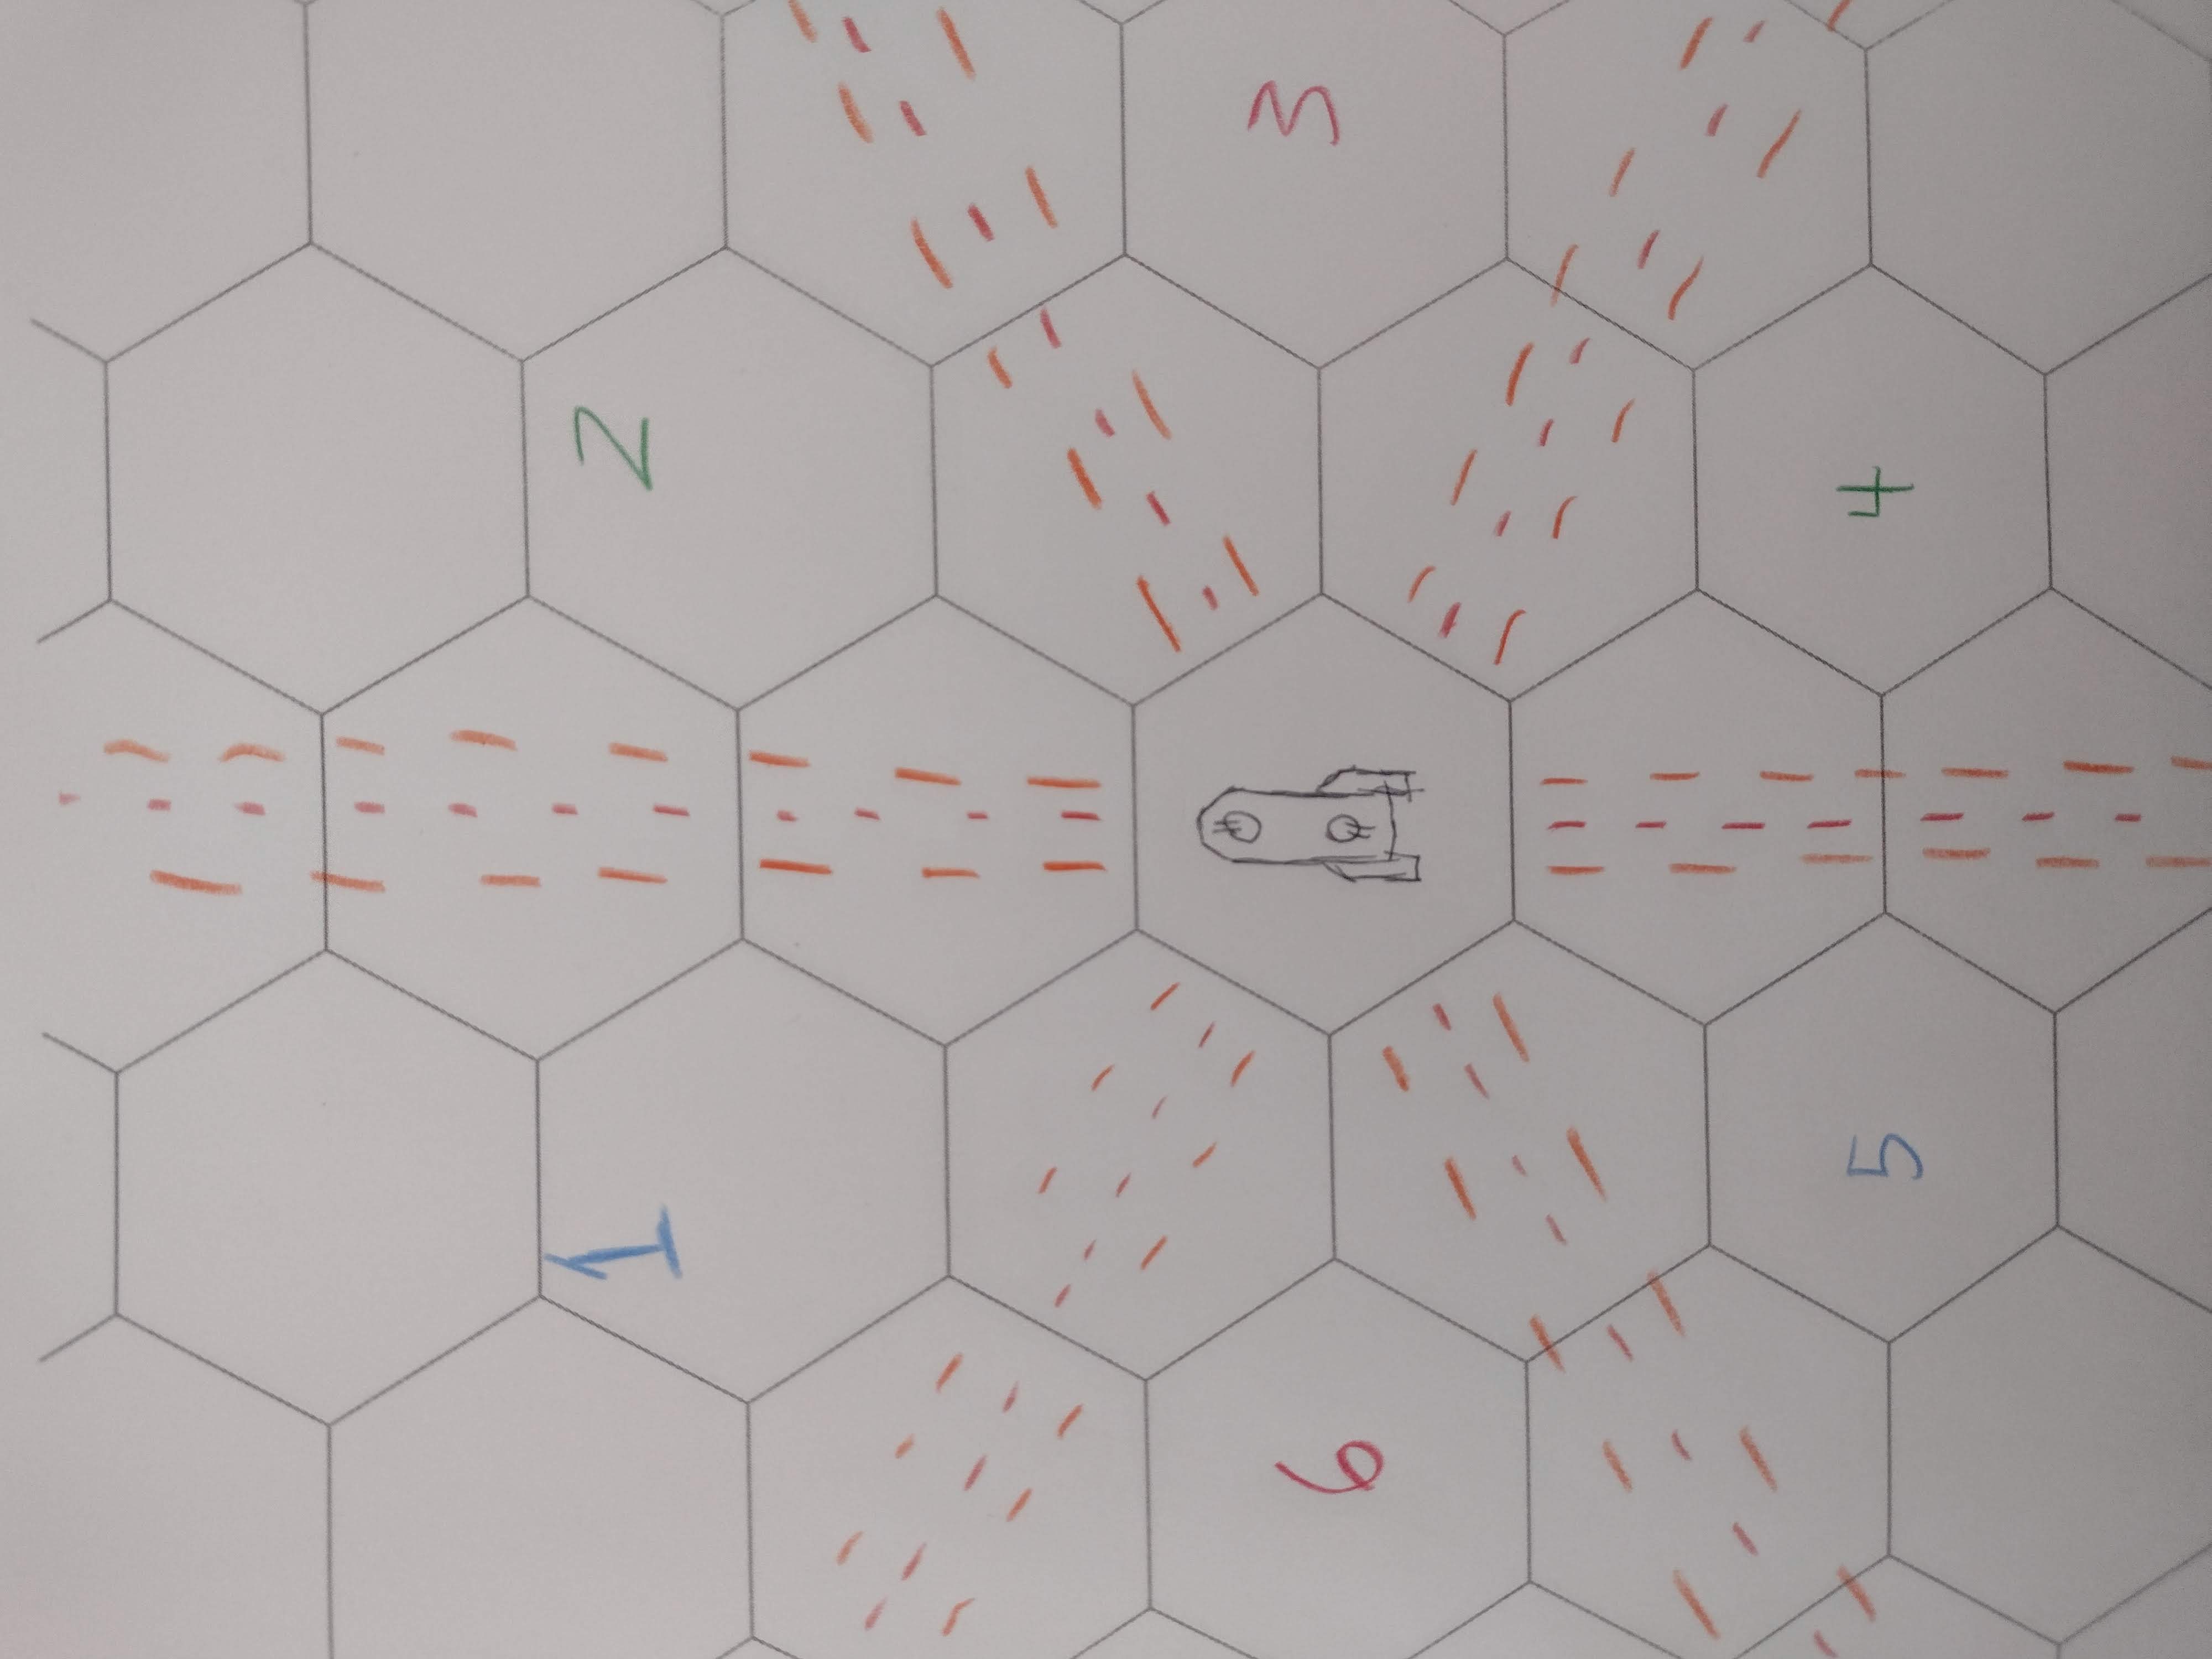 1 2
6 3
5 4